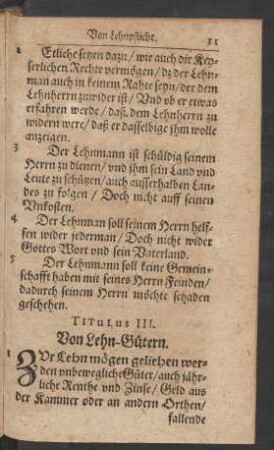 Von Lehnpflicht. 11
2 Etliche setzen dazu / wie auch die Key-
serlichen Rechte vermögen / dz der Lehn-
man auch in keinem Rahte seyn / der dem
Lehnherrn zuwider ist / Vnd ob er etwas
erfahren werde / daß dem Lehnherrn zu
widern were / daß er dasselbige jhm wolle
anzeigen.
3 Der Lehnmann ist schüldig seinem
Herrn zu dienen / vnd jhm sein Land vnd
Leute zu schützen / auch ausserhalben Lan-
des zu folgen / Doch nicht auff seinen
Vnkosten.
4 Der Lehnman soll seinem Herrn helf-
fen wider jederman / Doch nicht wider
Gottes Wort vnd sein Vaterland.
5 Der Lehnmann soll keine Gemein-
schafft haben mit seines Herrn Feinden /
dadurch seinem Herrn möchte schaden
geschehen.
TITULUS III.
Von Lehn-Gütern.
1 ZVr Lehn mögen geliehen wer-
den vnbewegliche Güter / auch jähr-
liche Renthe vnd Zinse / Geld aus
der Kammer oder an andern Orthen /
fallende